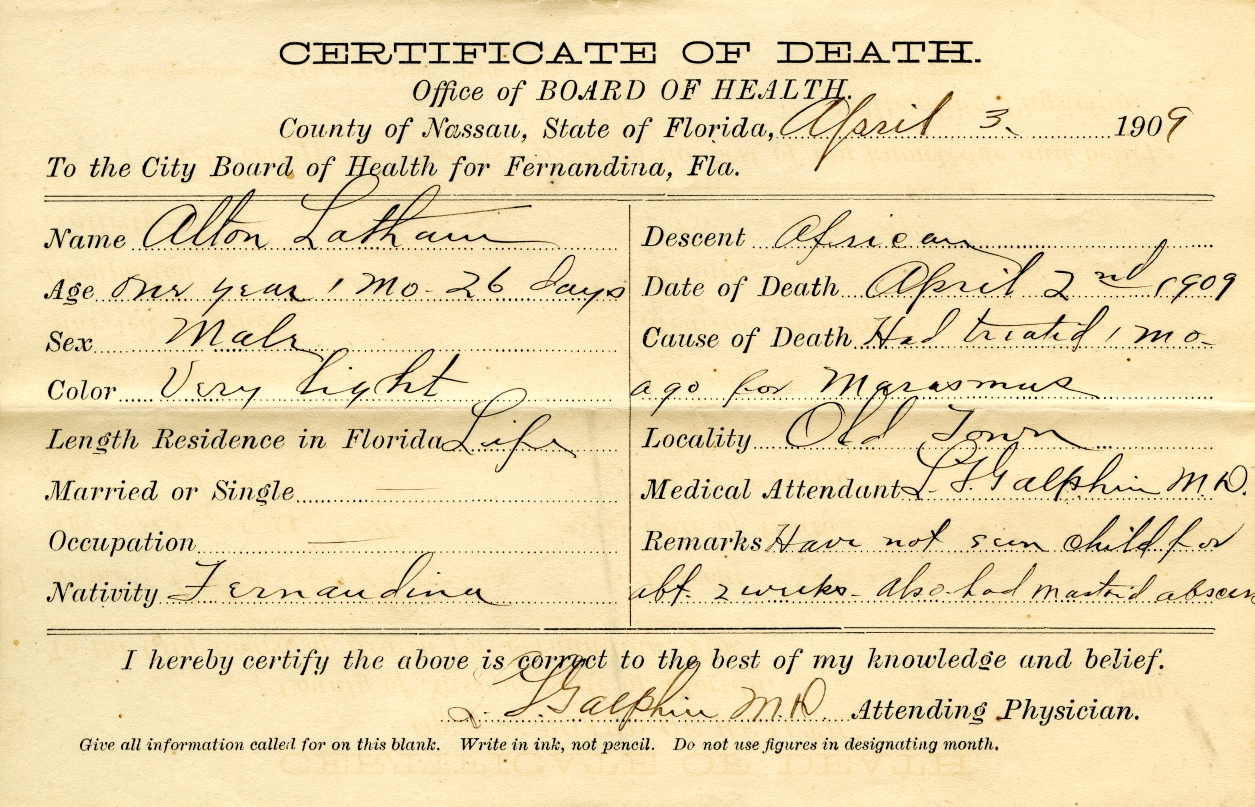 CERTIFICATE OF DEATH.
Office of BOARD OF HEALTH.
County of Nassau, State of Florida, April 3. 1909
To the City Board of Health for Fernandina, Fla.
Name Alton Latham
Age One year 1 Mo- 26 days
Sex Male
Color Very light
Length Residence in Florida Life
Married or Single —
Occupation —
Nativity Fernandina
Descent African
Date of Death April 2nd 1909
Cause of Death Had treated 1 mo-
ago for Marasmus
Locality Old Town
Medical Attendant L. G. Galphin M.D.
Remarks Have not seen child for
abt. 2 weeks- also had mastoid abscess
I hereby certify the above is correct to the best of my knowledge and belief.
Galphin M.D. Attending Physician.
Give all information called for on this blank. Write in ink, not pencil. Do not use figures in designating month.